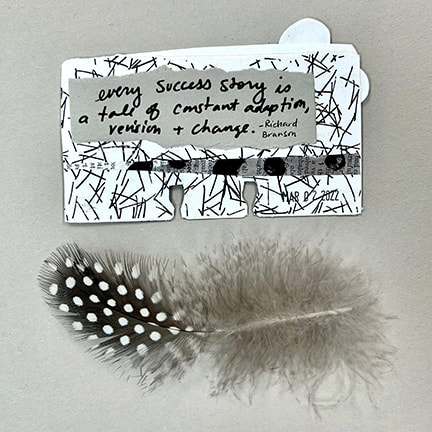 every success story is
a tale of constant adaption,
revision + change.
-Richard
Branson
MAR 02 2022